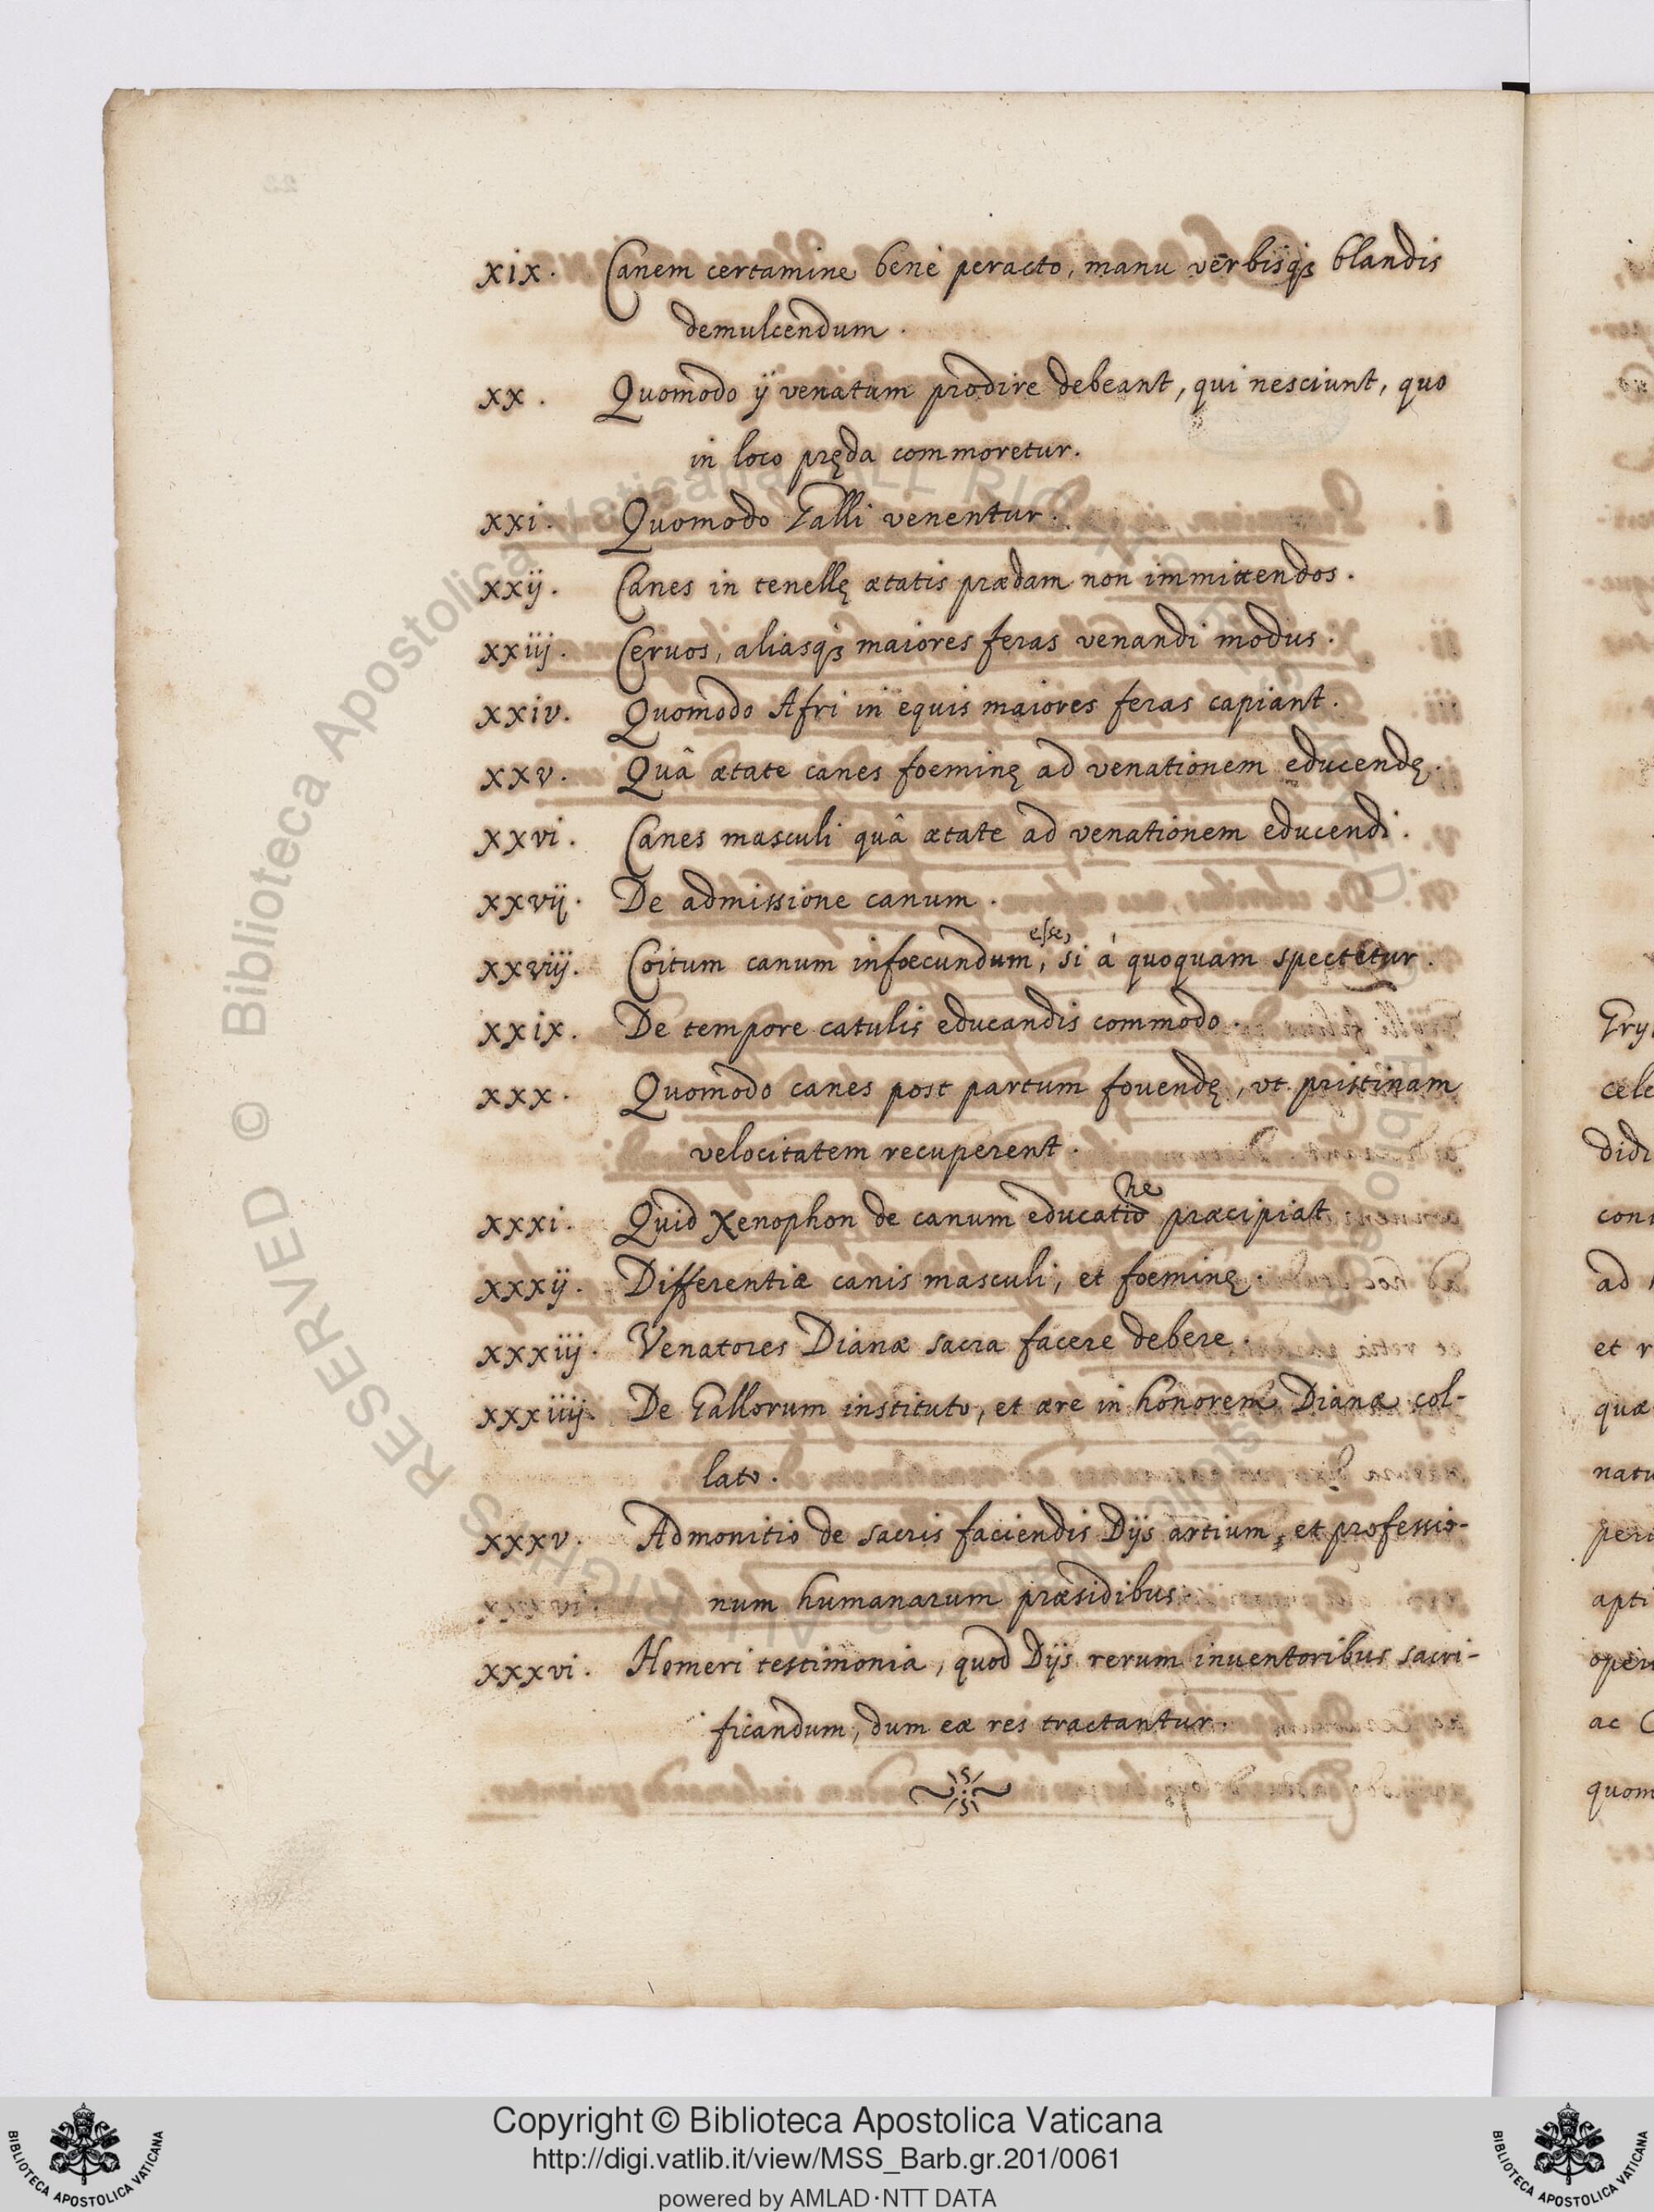 xix. Canem certamine benè peracto, manu verbisqꝫ blandis
demulcendum.
xx. Quomodo ij venatum prodire debeant, qui nesciunt, quo
in loco pręda commoretur.
xxi. Quomodo Galli venentur.
xxij. Canes in tenellę ætatis prædam non immittendos.
xxiij. Ceruos, aliasqꝫ maiores feras venandi modus.
xxiv. Quomodo Afri in equis maiores feras capiant.
xxv. Quâ ætate canes foeminę ad venationem educendę.
xxvi. Canes masculi quâ ætate ad venationem educendi.
xxvij. De admissione canum.
esse,
xxviij. Coitum canum infoecundum, si à quoquam spectetur.
xxix. De tempore catulis educandis commodo.
xxx. Quomodo canes post partum fouendę, vt pristinam
velocitatem recuperent.
ne
xxxi. Quid Xenophon de canum educatio præcipiat
xxxij. Differentiæ canis masculi, et foeminę.
xxxiij. Venatores Dianæ sacra facere debere.
xxxiiij. De Gallorum instituto, et ære in honorem Dianæ col-
lato.
xxxv. Admonitio de sacris faciendis Dijs artium, et professio-
xxxvi. num humanarum præsidibus.
xxxvi. Homeri testimonia, quod Dijs rerum inuentoribus sacri-
ficandum, dum eæ res tractantur.
Gry
cele
didi
con
ad
et r
quæ
natu
peri
apti
oper
ac C
quom
© Biblioteca Apostolica Vaticana ALL RIGHTS RESERVED
Copyright © Biblioteca Apostolica Vaticana
http://digi.vatlib.it/view/MSS_Barb.gr.201/0061
powered by AMLAD·NTT DATA
BIBLIOTECA APOSTOLICA VATICANA
BIBLIOTECA APOSTOLICA VATICANA